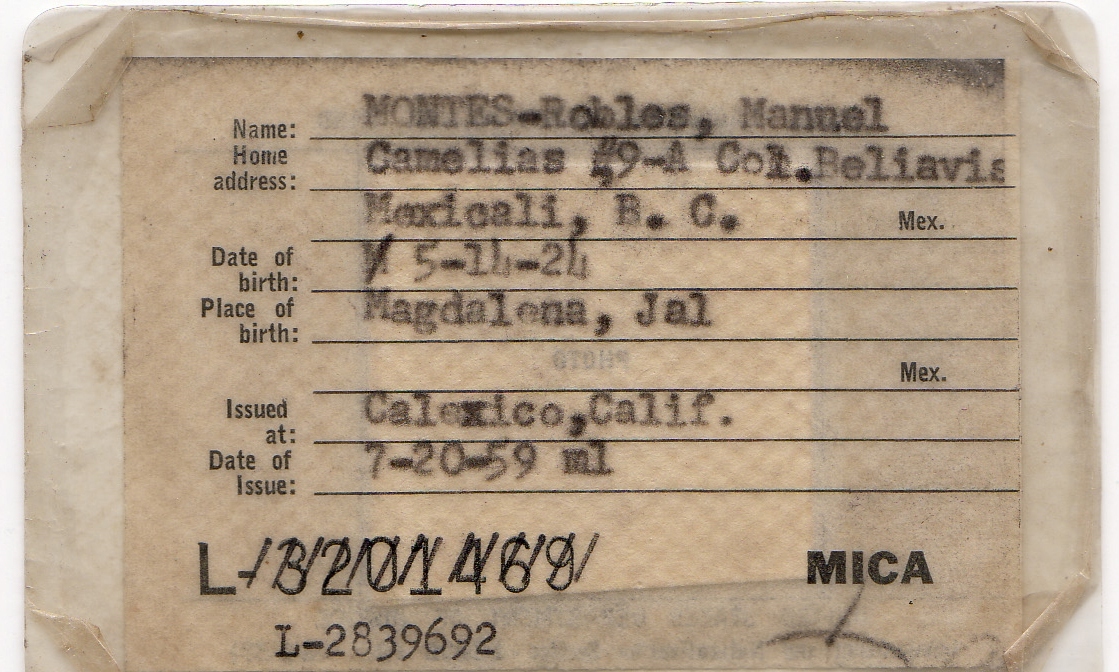 Name: MONTES-Robles, Manuel
Home address: Camelias #9-A Col. Bellavis
Mexicali, B. C. Mex.
Date of birth: 5-14-24
Place of birth: Magdalena, Jal
PHOTO
Mex.
Issued at: Calexico, Calif.
Date of Issue: 7-20-59 ml
L-3201469 MICA
L-2839692